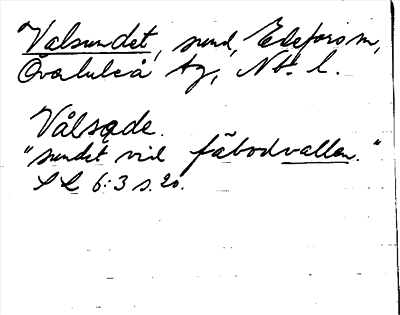 Valsundet, sund, Edefors sn,
Överluleå tg, Nb. l.
Vålsode.
"sundet vid fäbodvallen."
SL 6:3 s. 20.